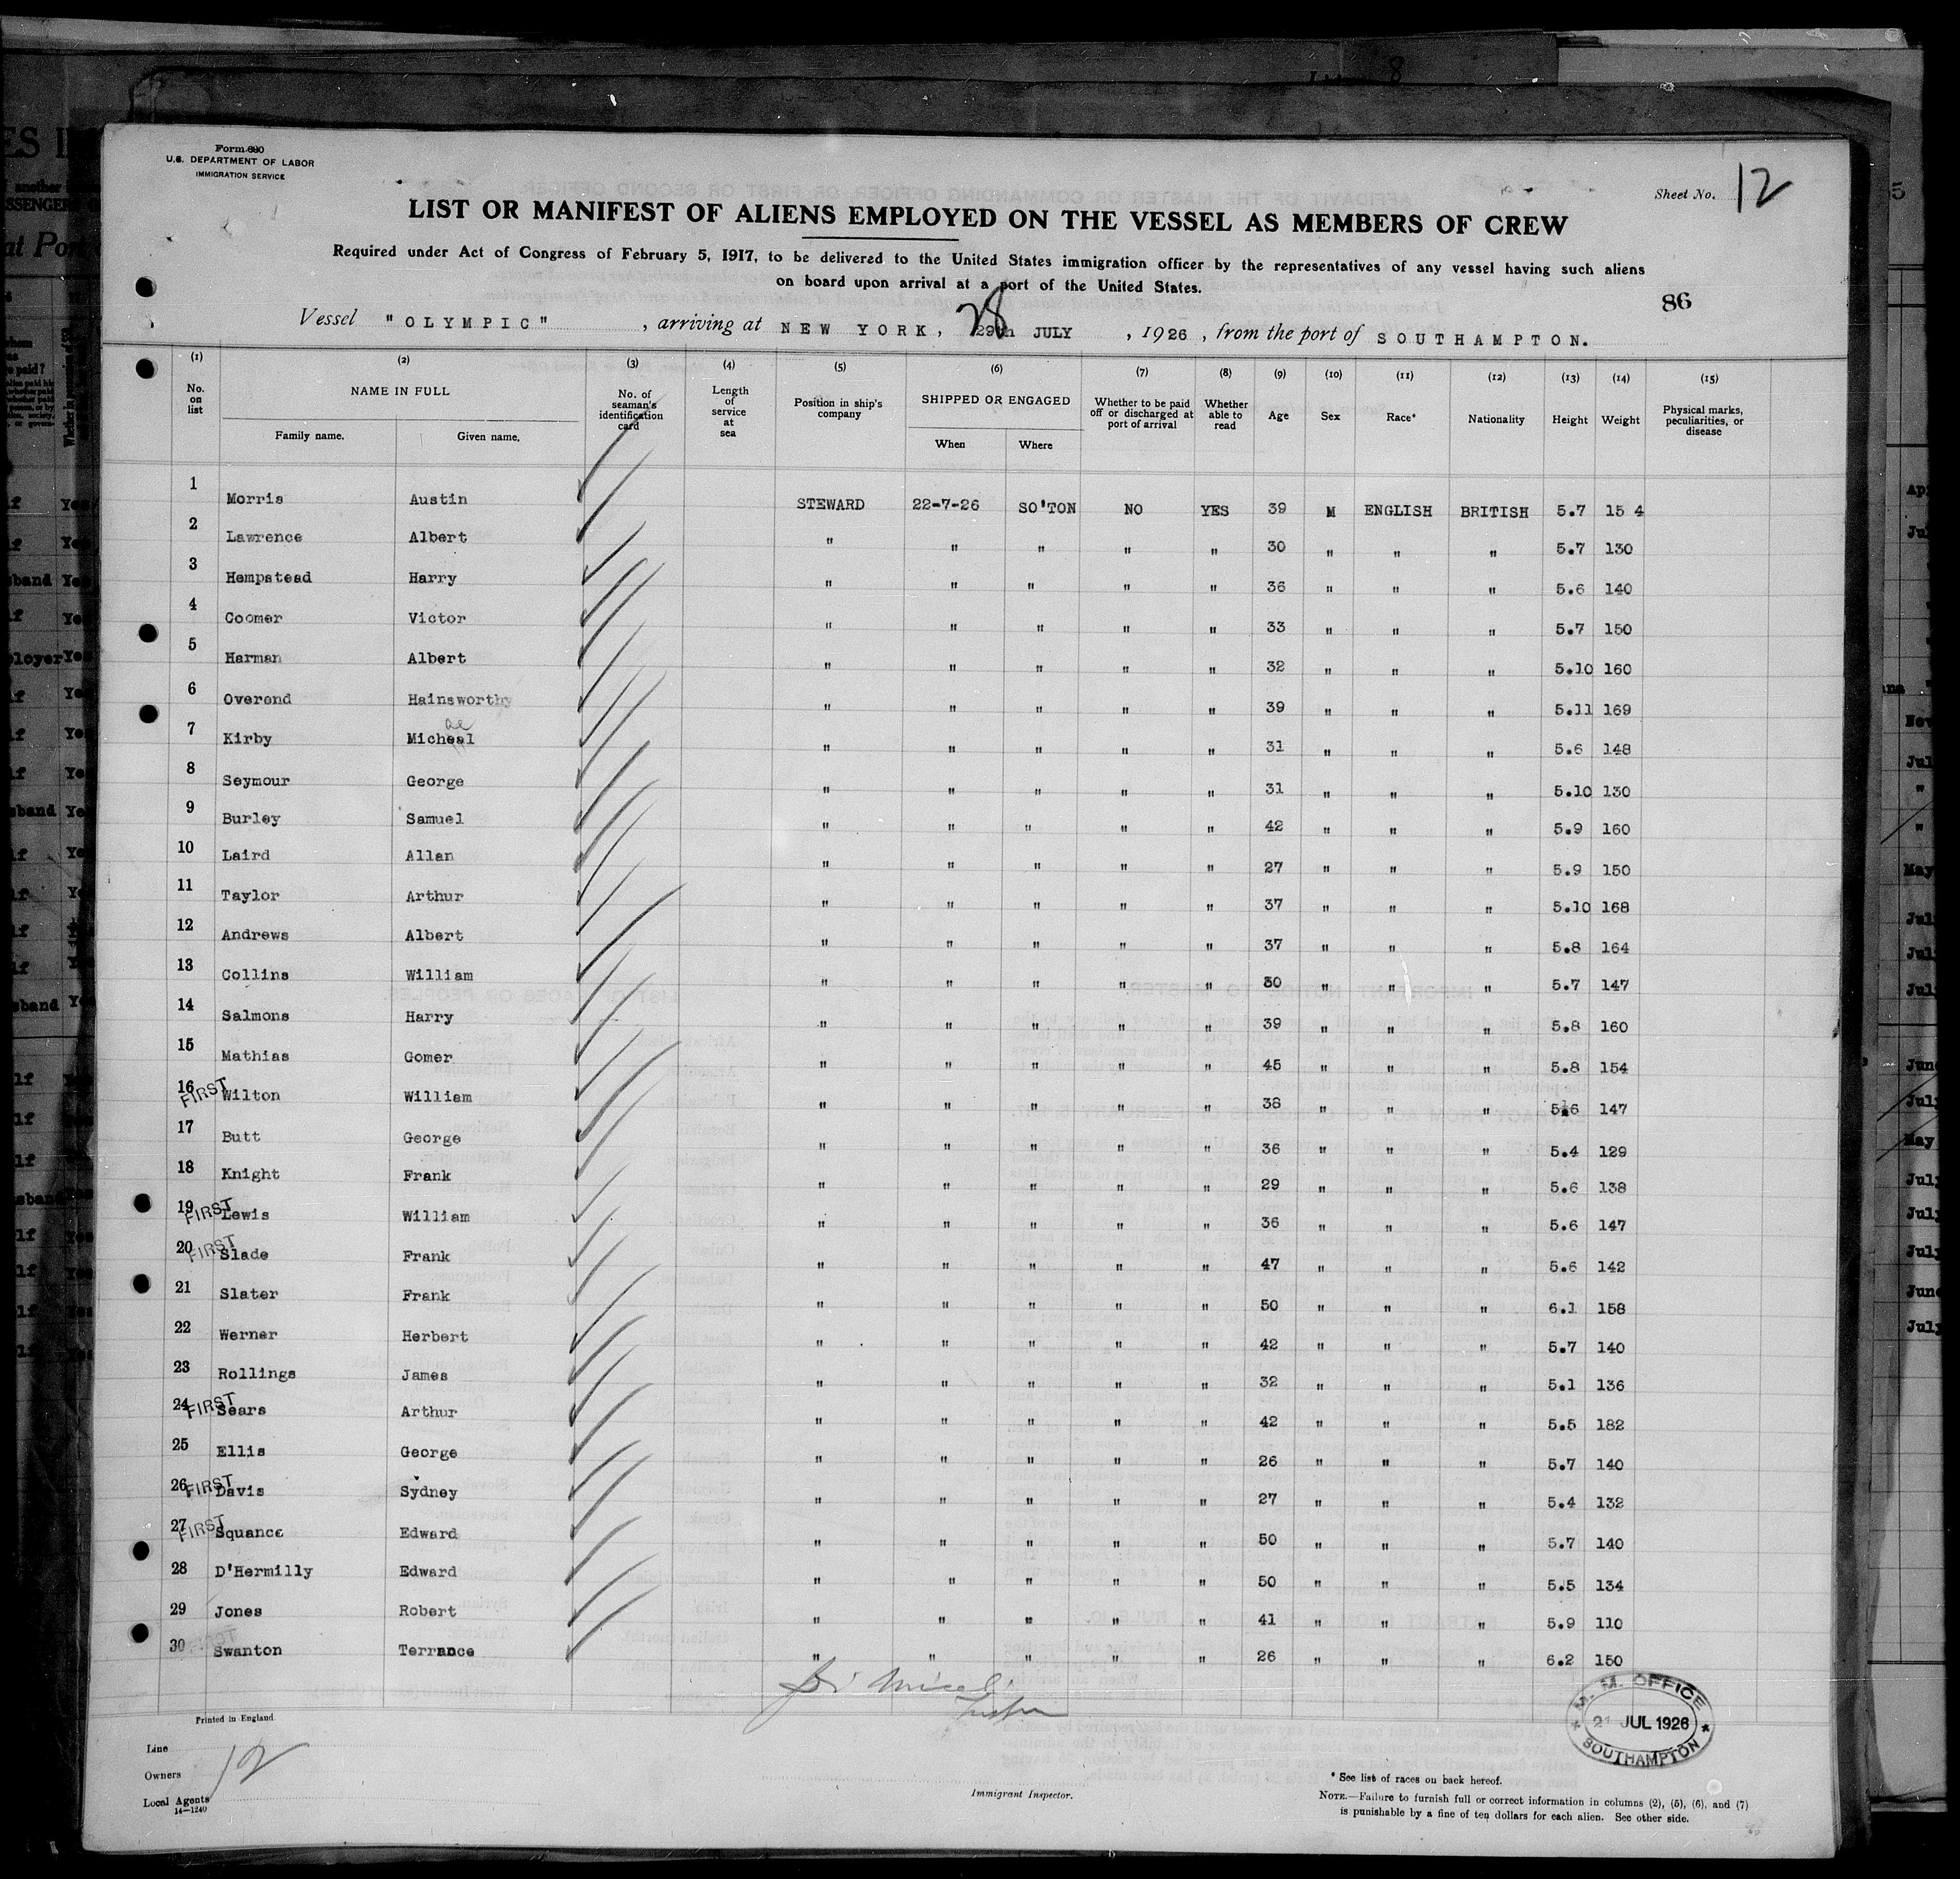 Form 680
U.S. DEPARTMENT OF LABOR
IMMIGRATION SERVICE
Sheet No. 12
LIST OR MANIFEST OF ALIENS EMPLOYED ON THE VESSEL AS MEMBERS OF CREW
Required under Act of Congress of February 5, 1917, to be delivered to the United States immigration officer by the representatives of any vessel having such aliens
on board upon arrival at a port of the United States.
86
Vessel "OLYMPIC", arriving at NEW YORK, 28 29th JULY, 1926, from the port of SOUTHAMPTON.
(1) (2) (3) (4) (5) (6) (7) (8) (9) (10) (11) (12) (13) (14) (15)
No. on list NAME IN FULL Family name. Given name. No. of seaman's identification card Length of service at sea Position in ship's company SHIPPED OR ENGAGED When Where Whether to be paid off or discharged at port of arrival Whether able to read Age Sex Race* Nationality Height Weight Physical marks, peculiarities, or disease
1 Morris Austin STEWARD 22-7-26 SO'TON NO YES 39 M ENGLISH BRITISH 5.7 15 4
2 Lawrence Albert " " " " " 30 " " " 5.7 130
3 Hempstead Harry " " " " " 36 " " " 5.6 140
4 Coomer Victor " " " " " 33 " " " 5.7 150
5 Harman Albert " " " " " 32 " " " 5.10 160
6 Overend Hainsworthy " " " " " 39 " " " 5.11 169
7 Kirby Micheal ae " " " " " 31 " " " 5.6 148
8 Seymour George " " " " " 31 " " " 5.10 130
9 Burley Samuel " " " " " 42 " " " 5.9 160
10 Laird Allan " " " " " 27 " " " 5.9 150
11 Taylor Arthur " " " " " 37 " " " 5.10 168
12 Andrews Albert " " " " " 37 " " " 5.8 164
13 Collins William " " " " " 50 " " " 5.7 147
14 Salmons Harry " " " " " 39 " " " 5.8 160
15 Mathias Gomer " " " " " 45 " " " 5.8 154
16 FIRST Wilton William " " " " " 38 " " " 5.6 147
17 Butt George " " " " " 36 " " " 5.4 129
18 Knight Frank " " " " " 29 " " " 5.6 138
19 FIRST Lewis William " " " " " 36 " " " 5.6 147
20 FIRST Slade Frank " " " " " 47 " " " 5.6 142
21 Slater Frank " " " " " 50 " " " 6.1 158
22 Werner Herbert " " " " " 42 " " " 5.7 140
23 Rollings James " " " " " 32 " " " 5.1 136
24 FIRST Sears Arthur " " " " " 42 " " " 5.5 182
25 Ellis George " " " " " 26 " " " 5.7 140
26 FIRST Davis Sydney " " " " " 27 " " " 5.4 132
27 FIRST Squance Edward " " " " " 50 " " " 5.7 140
28 D'Hermilly Edward " " " " " 50 " " " 5.5 134
29 Jones Robert " " " " " 41 " " " 5.9 110
30 FIRST Swanton Terrance " " " " " 26 " " " 6.2 150
Printed in England
M. M. OFFICE
21 JUL 1926
SOUTHAMPTON
Line
Owners
12
Local Agents
14—1240
Immigrant Inspector.
* See list of races on back hereof.
NOTE.—Failure to furnish full or correct information in columns (2), (5), (6), and (7)
is punishable by a fine of ten dollars for each alien. See other side.